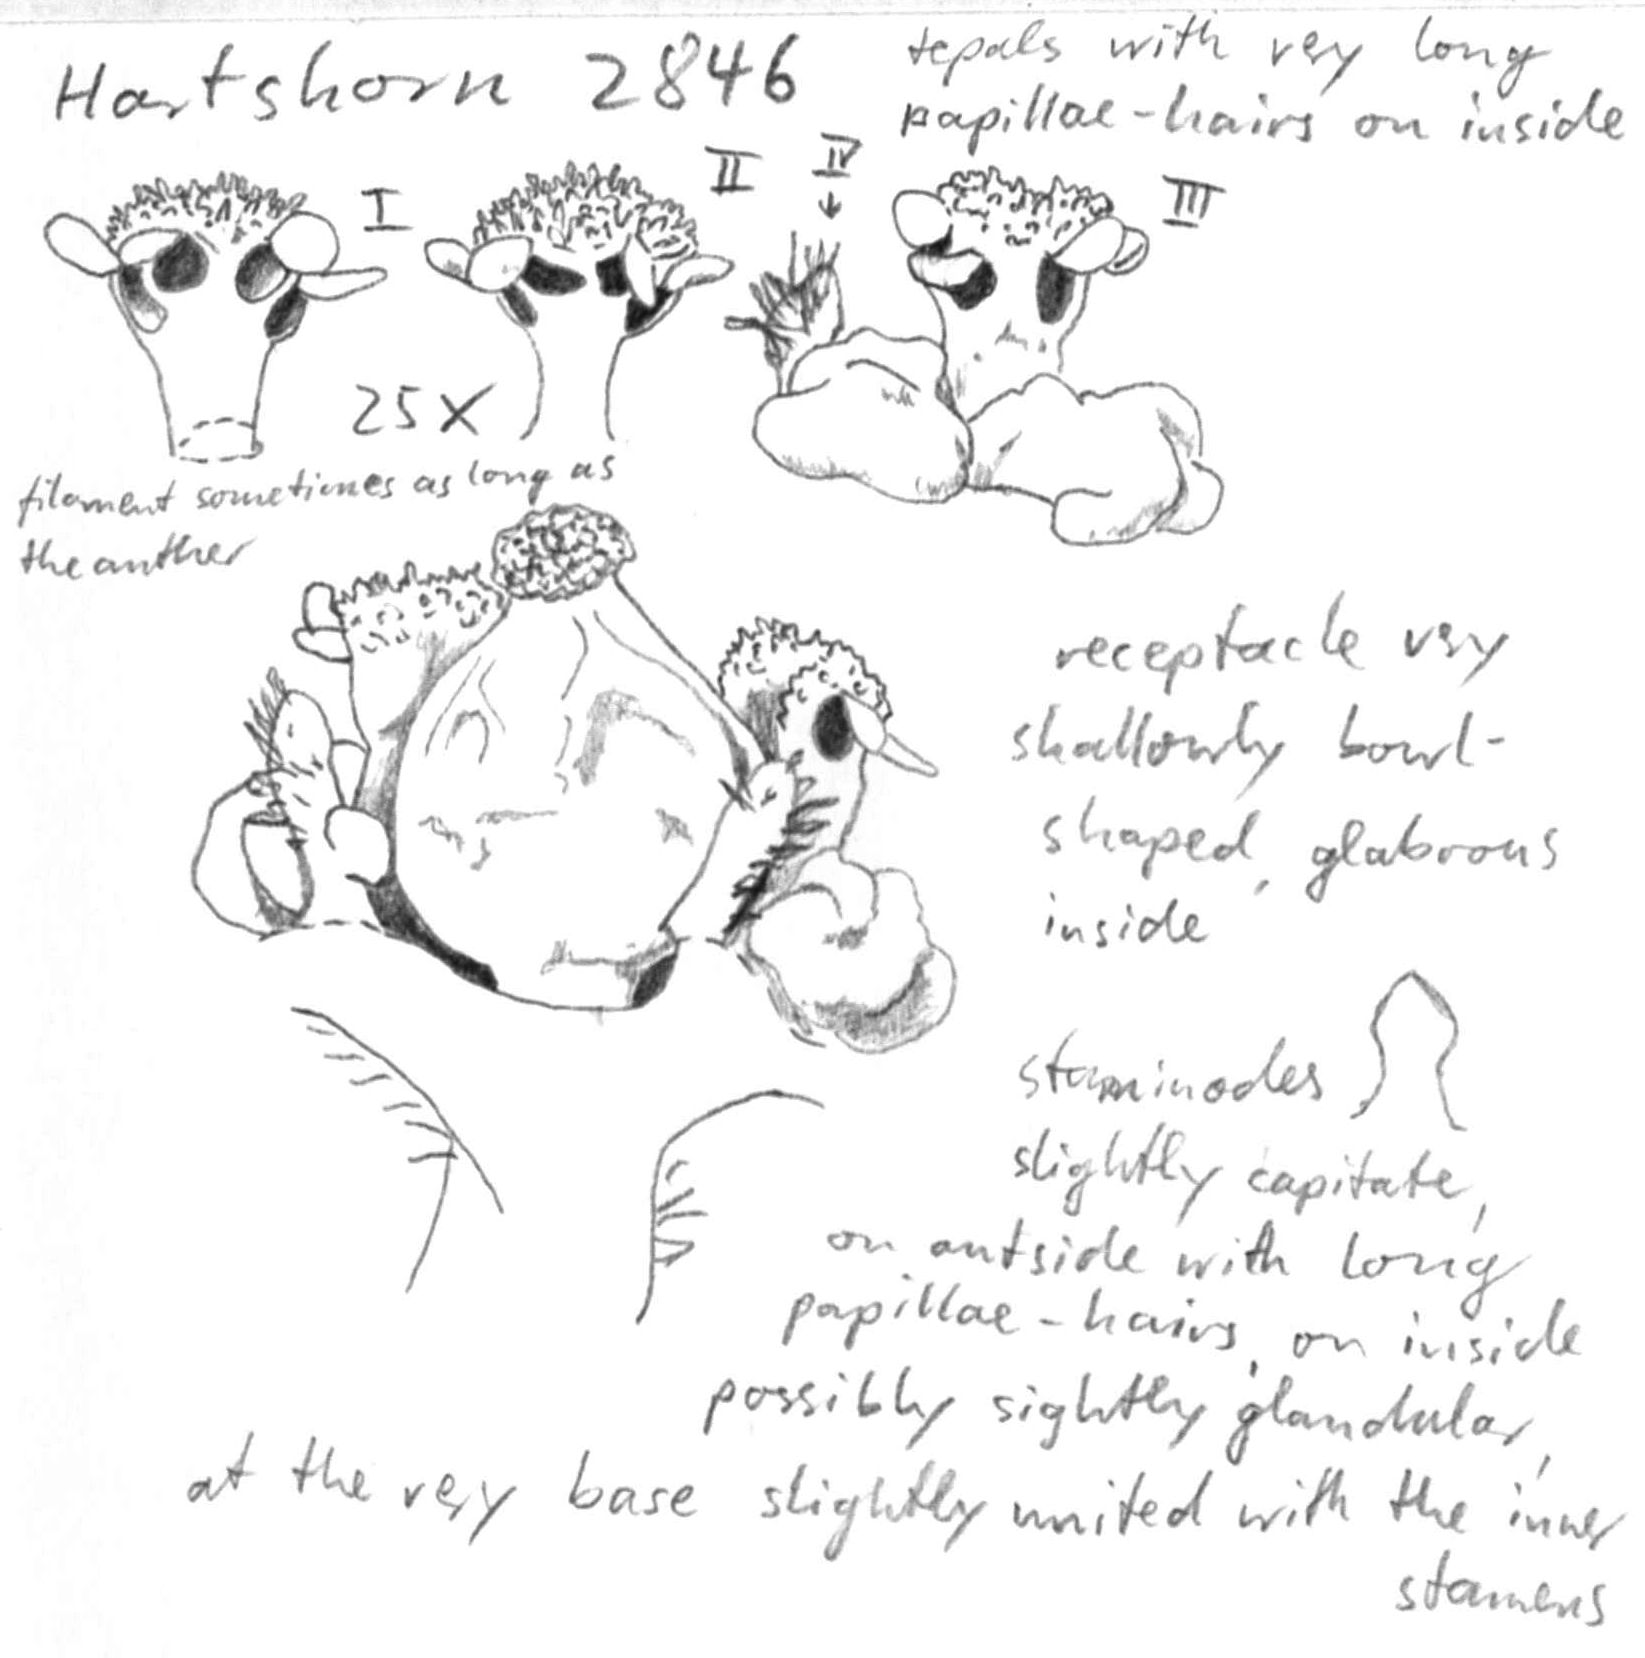 Hartshorn 2846
tepals with very long
papillae-hairs on inside
I
II
IV
III
25X
filament sometimes as long as
the anther
receptacle very
shallowly bowl-
shaped, glabrous
inside
staminodes
slightly capitate,
on outside with long
papillae-hairs, on inside
possibly sightly glandular,
at the very base slightly united with the inner
stamens